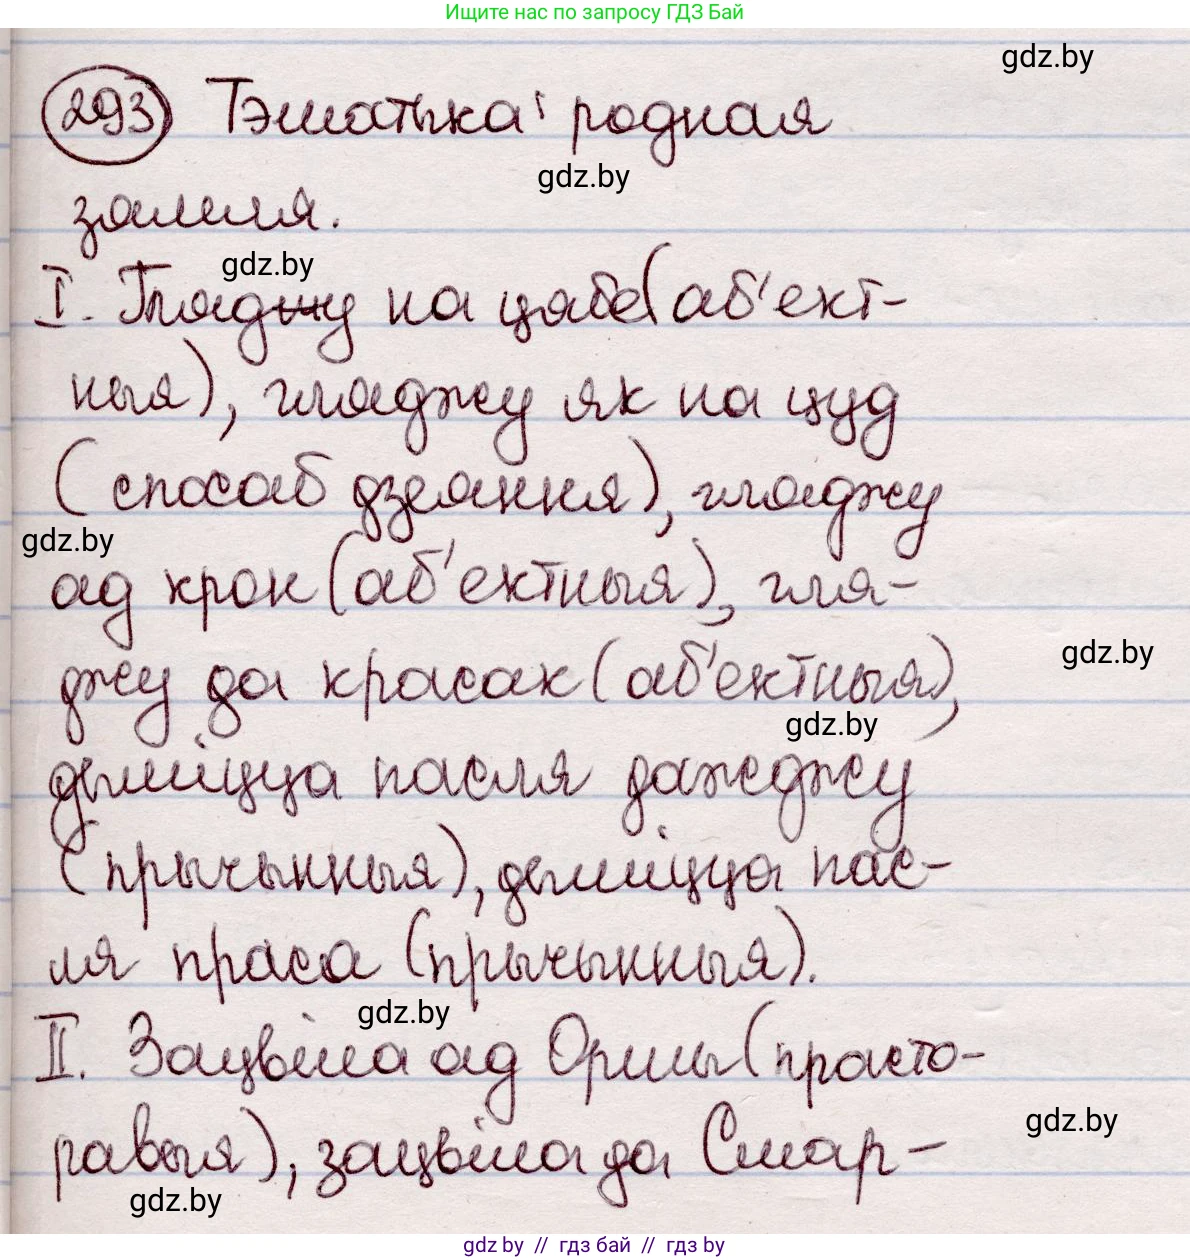 Ищите нас по запросу ГДЗ Бай
gdz.by
293 Тэматыка: родная
gdz.by
зямля.
gdz.by
I. Гляджу на цябе (аб'ект-
ныя), гляджу як на цуд
(спосаб дзеяння), гляджу
gdz.by
ад крон (аб'ектныя), гля-
gdz.by
джу да красак (аб'ектныя),
gdz.by
дыміцца пасля дажджу
(прычынныя), дыміцца пас-
ля праса (прычынныя).
gdz.by
II. Зацвіла ад Орши (прасто-
gdz.by
равыя), зацвіла да Смар-
gdz.by
gdz by // гдз бай // gdz by